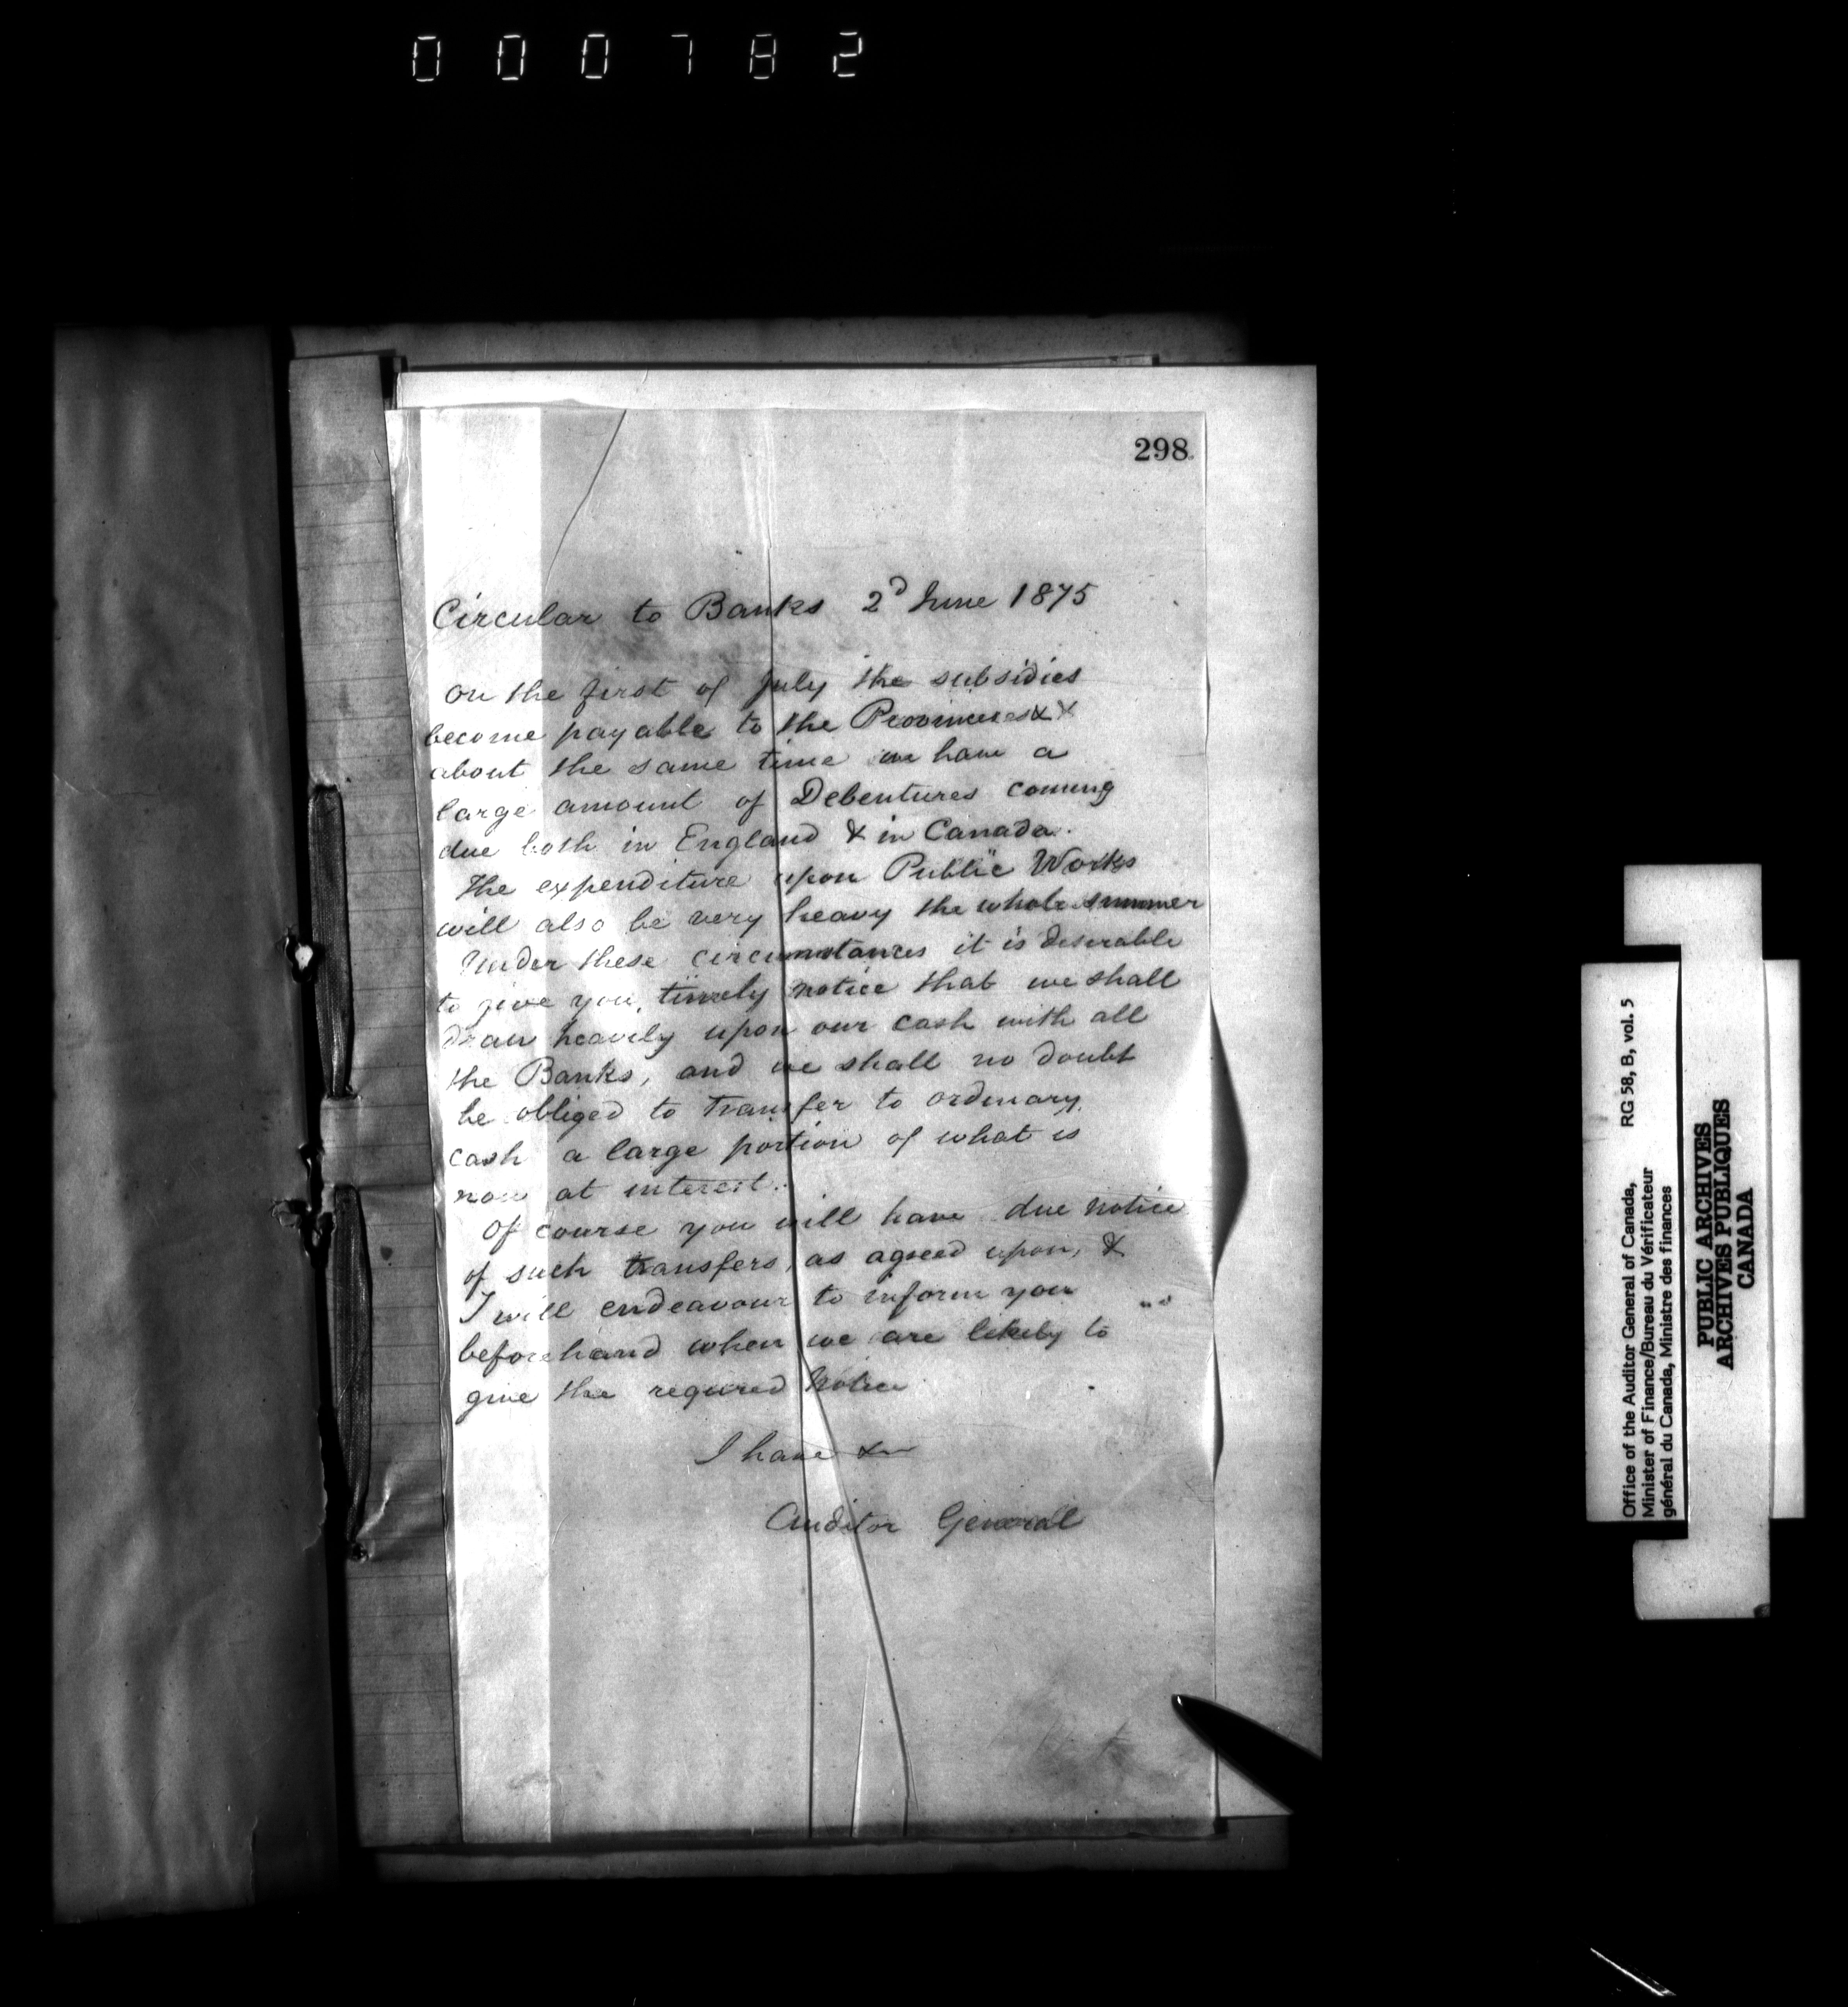 000782
298
Circular to Banks 2d June 1875
On the first of July the subsidies
become payable to the Provinces & &
about the same time we have a
large amount of Debentures coming
due both in England & in Canada.
The expenditure upon Public Works
will also be very heavy the whole summer
Under these circumstances it is desirable
to give you, timely notice that we shall
draw heavily upon our cash with all
the Banks, and we shall no doubt
be obliged to transfer to ordinary
cash a large portion of what is
now at interest.
Of course you will have due notice
of such transfers, as agreed upon, &
I will endeavour to inform you
beforehand when we are likely to
give the required notice
I have &c
Auditor General
Office of the Auditor General of Canada, RG 58, B, vol. 5
Minister of Finance/Bureau du Vérificateur
général du Canada, Ministre des finances
PUBLIC ARCHIVES
ARCHIVES PUBLIQUES
CANADA